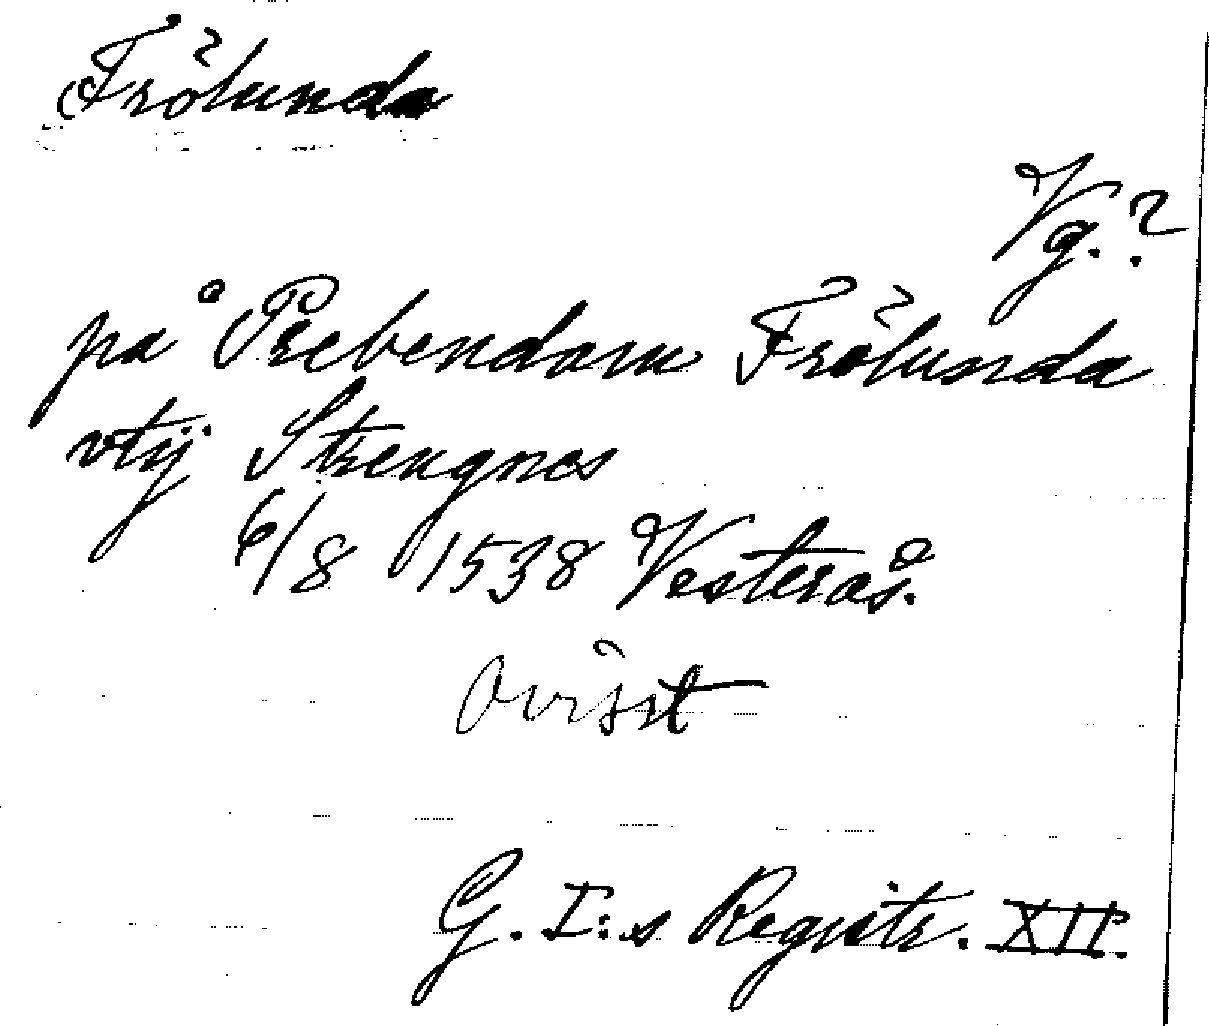 Frölunda
Vg.?
på Prebendam Frölunda
vtij Strengnes
6/8 1538 Vesterås.
Ovisst
G. I:s Registr. XII.